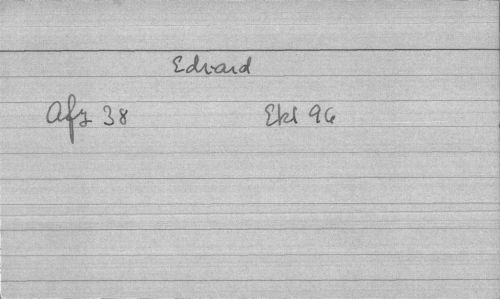 Edvard
Afz 38 Ekl 96